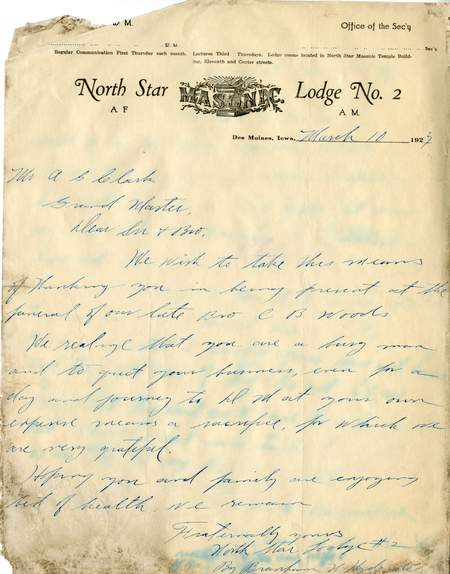 D M.
Office of the Sec'y
D. M.
Sec'y
Regular Communication First Thursday each month. Lectures Third Thursdays. Lodge rooms located in North Star Masonic Temple Build-
ing, Eleventh and Center streets.
North Star MASONIC Lodge No. 2
A F A M.
Des Moines, Iowa, March 10 1927
Mr A G Clark
Grand Master,
Dear Sir & Bro,
We wish to take this means
of thanking you in being present at the
funeral of our late Bro C B Woods
We realize that you are a busy man
and to quit your business, even for a
day and journey to D M at your own
expense means a sacrifice, for which we
are very grateful.
Hoping you and family are enjoying
best of health, we remain
Fraternally yours
North Star Lodge #2
By